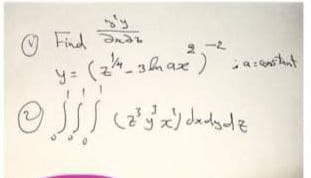 ① Find ∂²y/∂x∂z
y = (z^{1/4} - 3 ln ax²)^{-2} ; a = constant
② ∫₀¹ ∫₀¹ ∫₀¹ (z³ y³ x³) dx dy dz